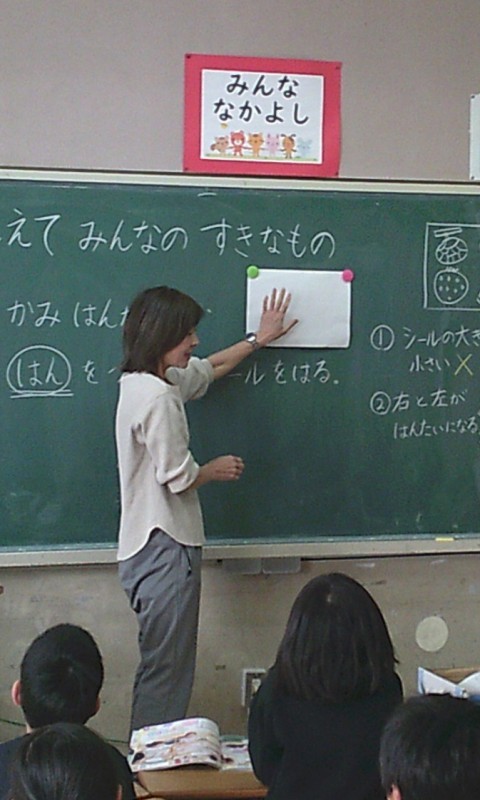 みんな
なかよし
えて みんなの すきなもの
かみ はん
はん を ールをはる。
① シールの大き
小さい X
② 右と左が
はんたいになる